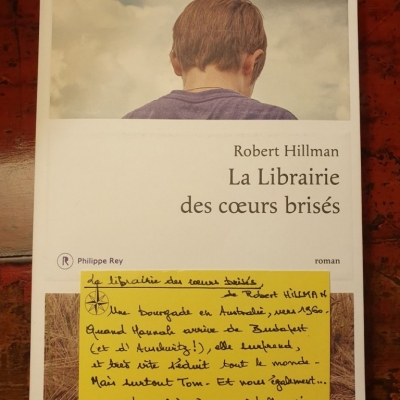 Robert Hillman
La Librairie
des cœurs brisés
R Philippe Rey
roman
La librairie des cœurs brisés,
de Robert HILLMAN
Une bourgade en Australie, vers 1960.
Quand Hannah arrive de Budapest
(et d'Auschwitz!), elle surprend,
et très vite séduit tout le monde.
Mais surtout Tom. Et nous également...